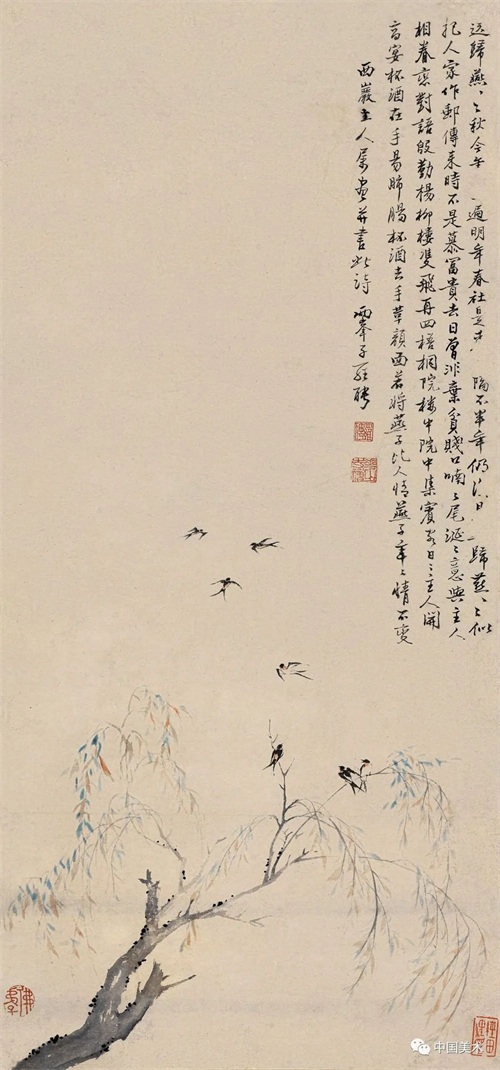 送歸燕、、秋今年 一過明年春社是 隔不半年仍 日 歸燕、、似
把人家作郵傳来時不是慕冨貴去日曽非棄貧賤口喃、尾涎、意與主人
相眷戀對語殷勤楊柳樓雙飛再四梧桐院樓中院中集賓 日、主人開
高宴杯酒在手易肺腸杯酒去手革顔面若將燕子比人情燕子年、情不變
西巖主人屬畫并書此詩 兩峯子羅聘
中国美术